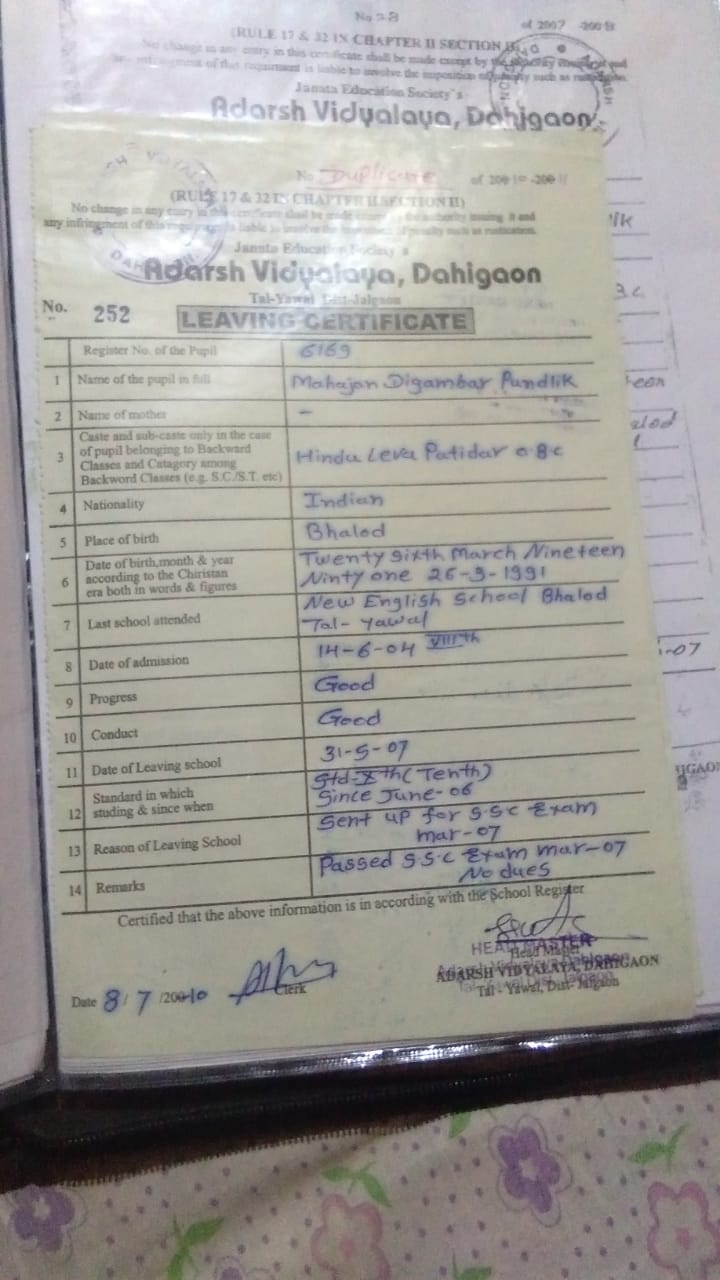 No 28 of 2007 -200 8
(RULE 17 & 32 IN CHAPTER II SECTION II)
No change in any entry in this certificate shall be made except by the authority
infringement of this requirment is liable to involve the imposition of penalty such as rustication.
Janata Education Society's
Adarsh Vidyalaya, Dahigaon
No Duplicate of 200 10 -200 11
(RULE 17 & 32 IN CHAPTER II SECTION II)
No change in any entry in this certificate shall be made except by the authority issuing it and
any infringment of this is liable to involve the of penalty such as rustication.
Janata Education Society's
Adarsh Vidyalaya, Dahigaon
Tal-Yawal Dist-Jalgaon
No. 252 LEAVING CERTIFICATE
Register No. of the Pupil 6169
1 Name of the pupil in full Mahajan Digambar Pundlik
2 Name of mother -
3 Caste and sub-caste only in the case
of pupil belonging to Backward
Classes and Catagory among
Backword Classes (e.g. S.C./S.T. etc) Hindu Leva Patidar OBC
4 Nationality Indian
5 Place of birth Bhalod
6 Date of birth,month & year
according to the Chiristan
era both in words & figures Twenty Sixth March Nineteen
Ninty one 26-3-1991
7 Last school attended New English School Bhalod
Tal- Yawal
8 Date of admission 14-6-04 VIIIth
9 Progress Good
10 Conduct Good
11 Date of Leaving school 31-5-07
12 Standard in which
studing & since when Std-Xth (Tenth)
Since June-06
13 Reason of Leaving School Sent up for S.S.C Exam
mar-07
14 Remarks Passed S.S.C Exam mar-07
No dues
Certified that the above information is in according with the School Register
HEAD MASTER
Head Master
ADARSH VIDYALAYA, DAHIGAON
Tal - Yawal, Dist- Jalgaon
Date 8/ 7 /200 10 Clerk